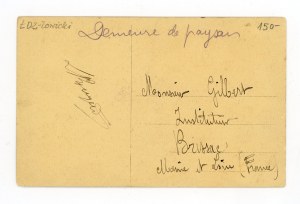 Demeure de paysan
150-
Monsieur Gilbert
Instituteur
Brissac
Maine et Loire (France)